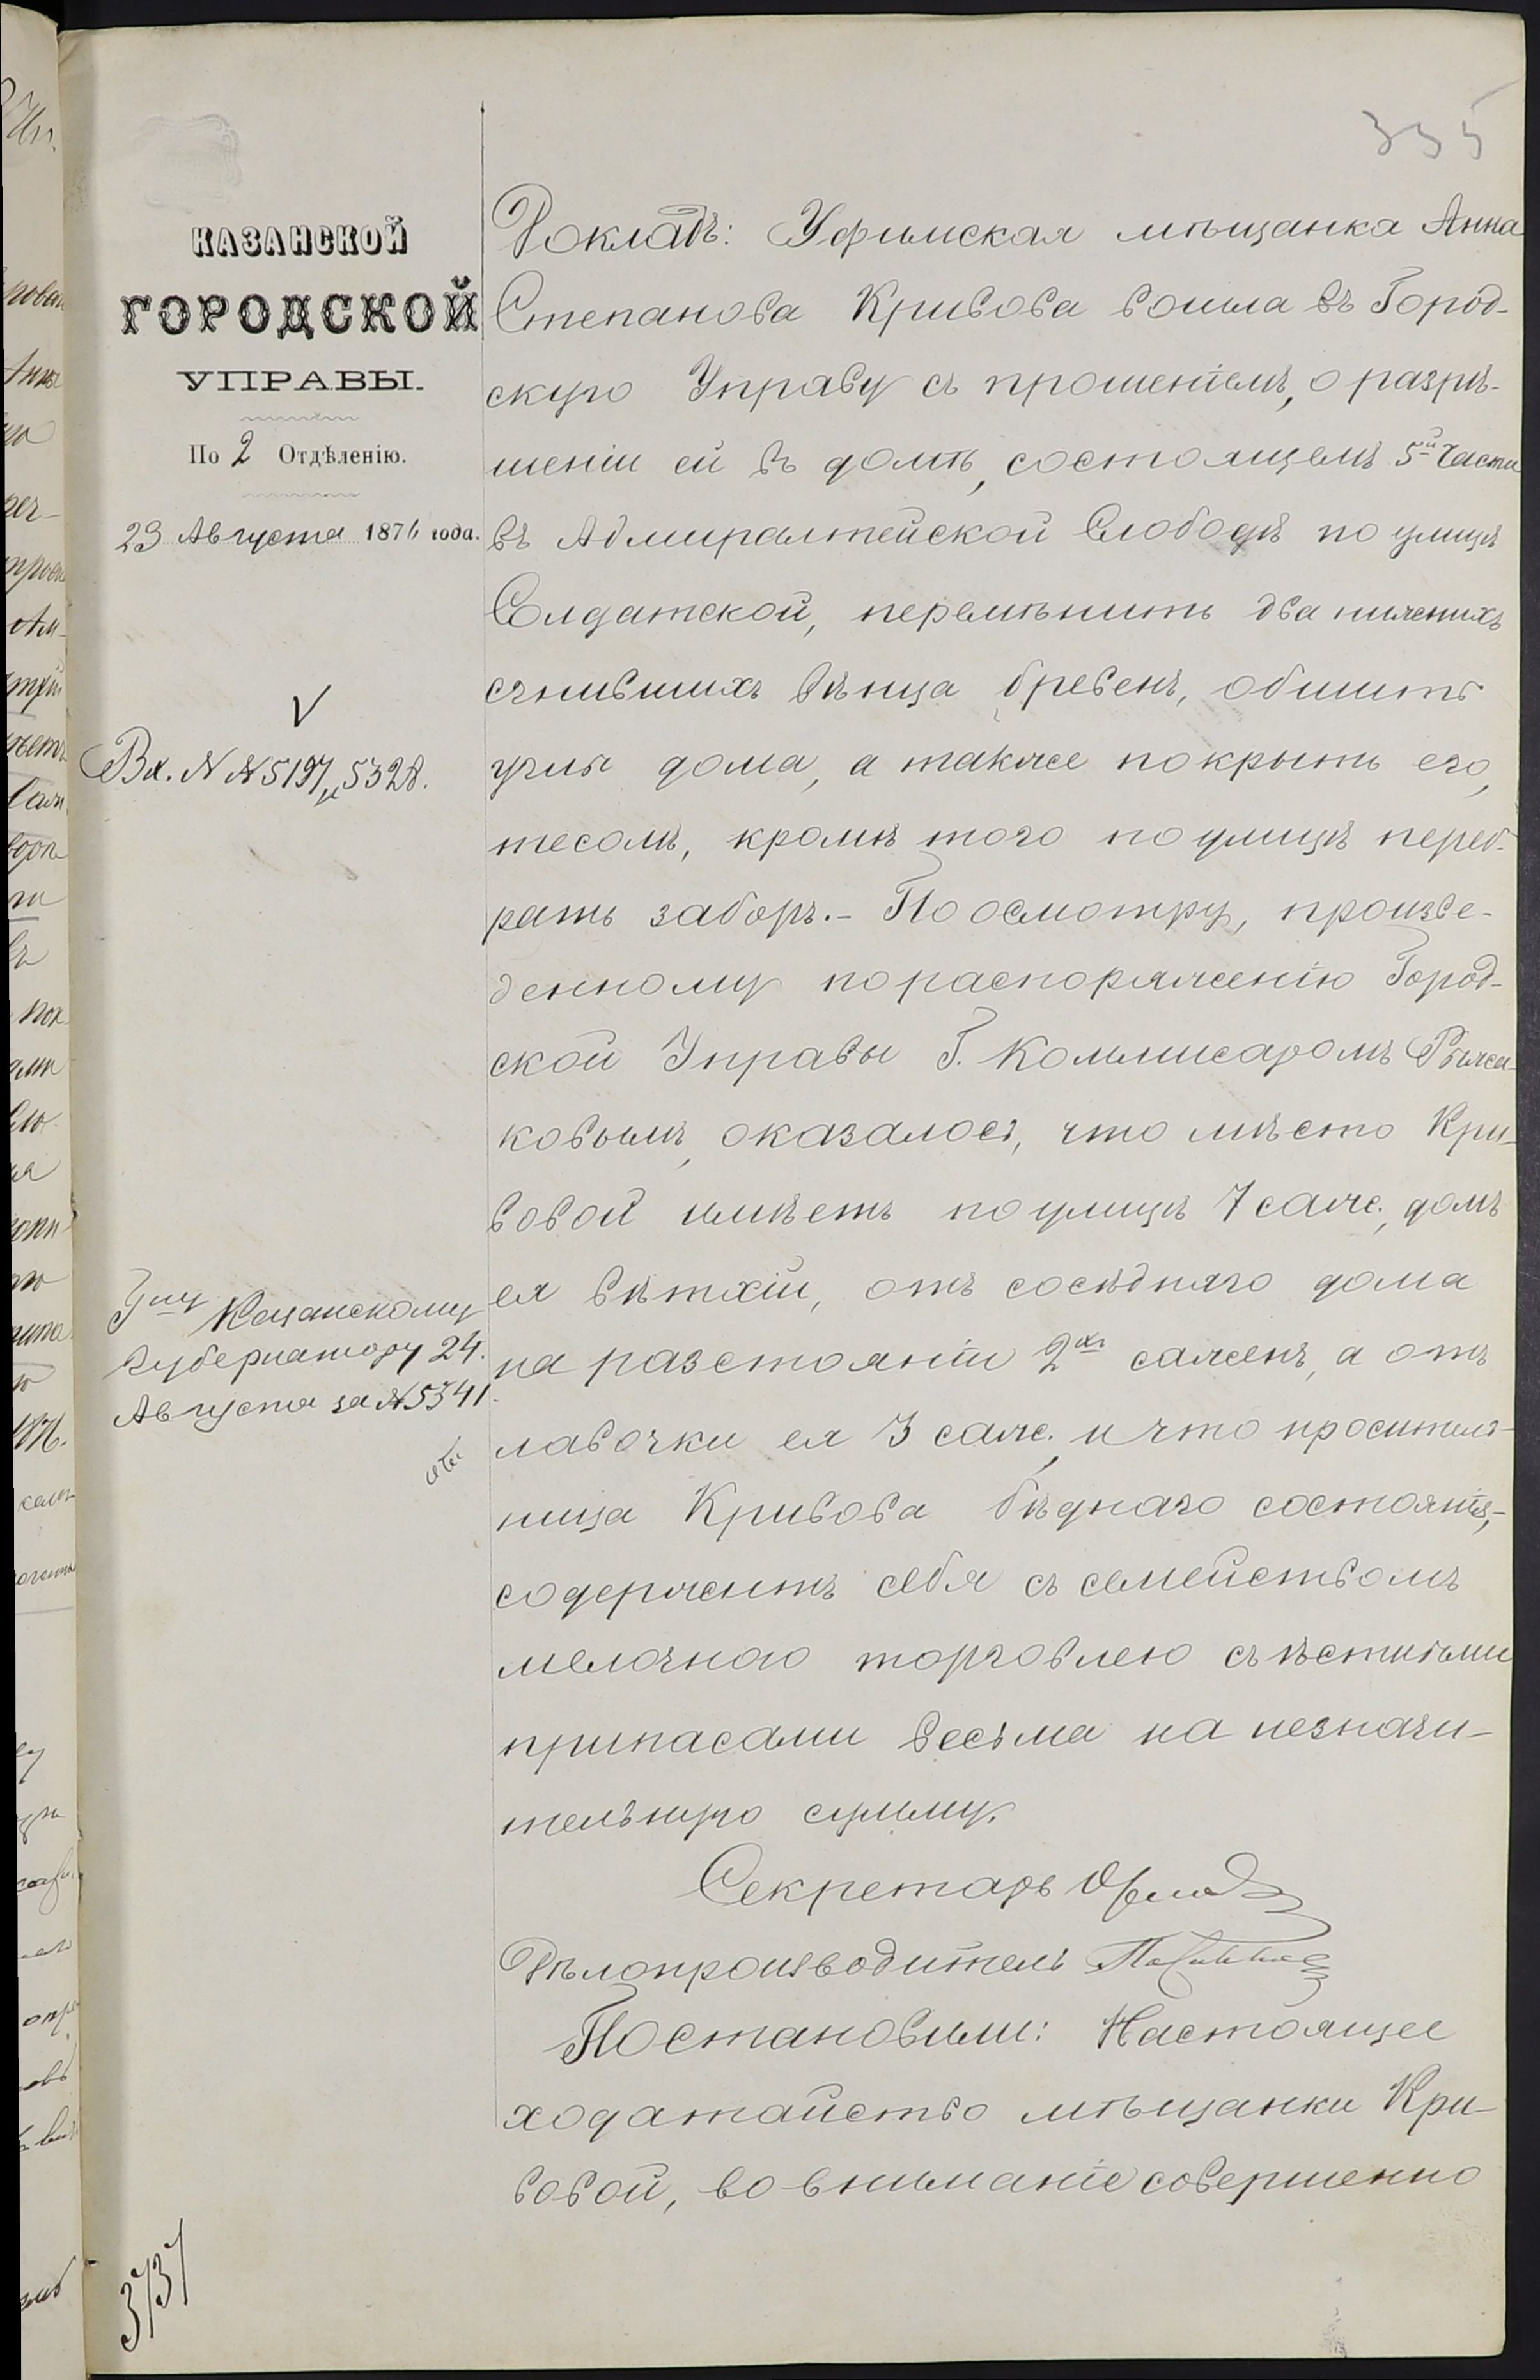 335
КАЗАНСКОЙ
ГОРОДСКОЙ
УПРАВЫ.
По 2 Отдѣленію.
23 Августа 1876 года.
V
Вх. N N 5197 и 5328.
Казанскому
Губернатору 24.
Августа за N 5341.
3737
Докладъ: Уфимская мѣщанка Анна
Степанова Кривова вошла въ Город-
скую Управу съ прошеніемъ, о разрѣ-
шеніи ей въ домѣ, состоящемъ 5й части
въ Адмиралтейской Слободѣ по улицѣ
Солдатской, перемѣнить два нижнихъ
сгнившихъ вѣнца бревенъ, обшить
углы дома, а также покрыть его,
тесомъ, кромѣ того по улицѣ переб-
рать заборъ.- По осмотру, произве-
денному по распоряженію Город-
ской Управы Г. Коммисаромъ Рыжа-
ковымъ, оказалось, что мѣсто Кри-
вовой имѣетъ по улицѣ 7 саж., домъ
ея вѣтхій, отъ сосѣдняго дома
на разстояніи 2хъ саженъ, а отъ
лавочки ея 3 саж., и что проситель-
ница Кривова бѣднаго состоянія,-
содержитъ себя съ семействомъ
мелочною торговлею съѣстными
припасами весьма на незначи-
тельную сумму.
Секретарь
Дѣлопроизводитель
Постановили: Настоящее
ходатайство мѣщанки Кри-
вовой, во вниманіе совершенно